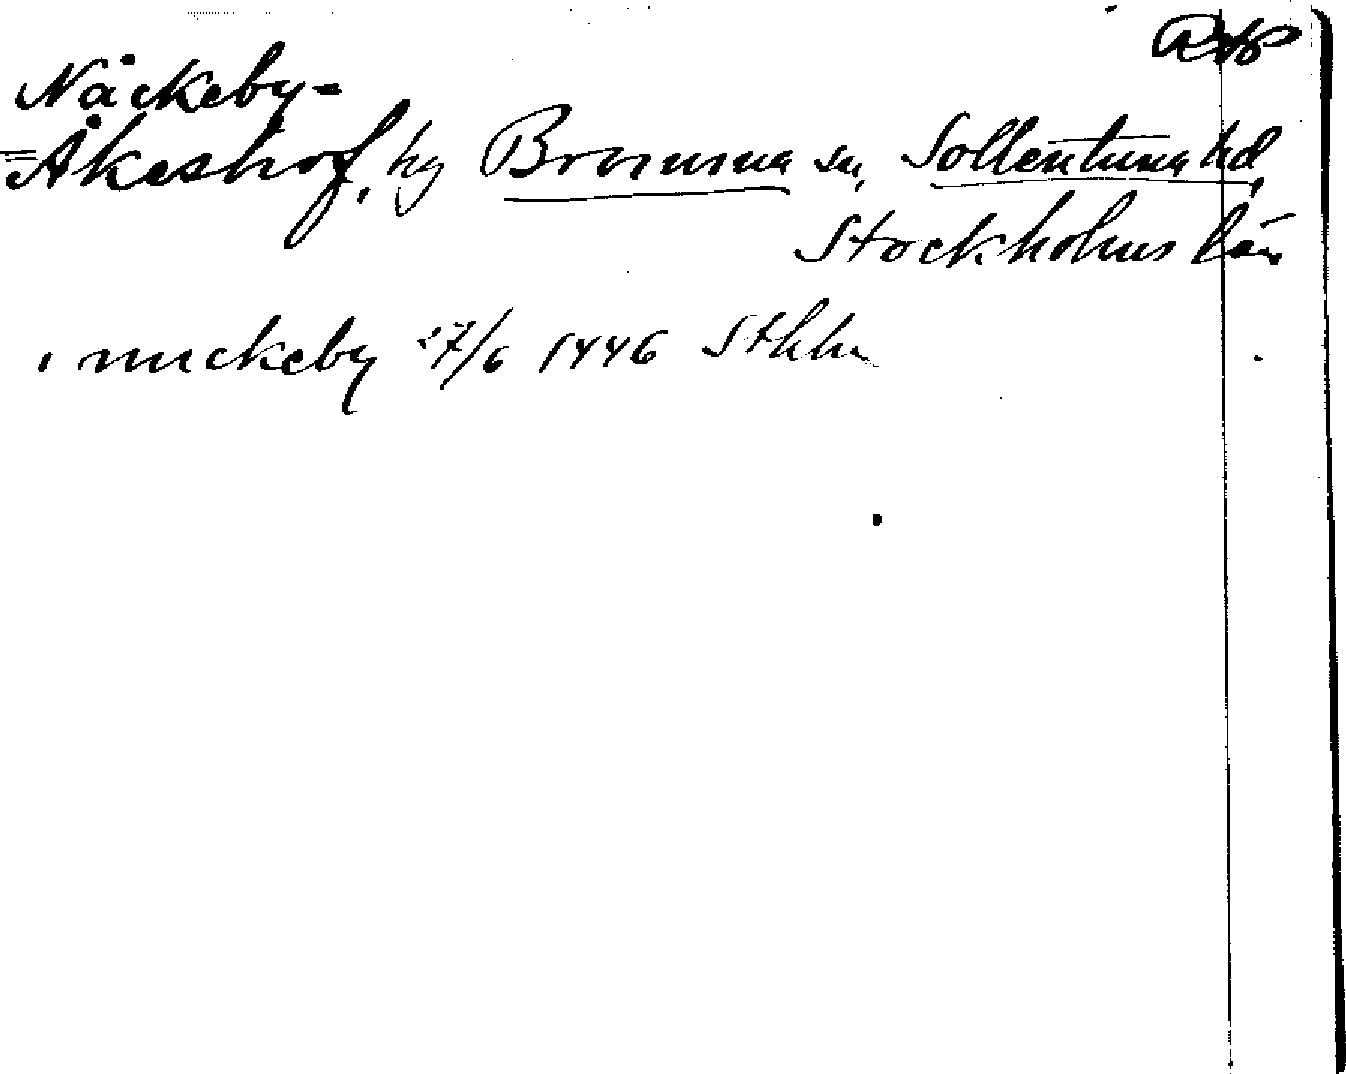 Näckeby-
=Åkeshof, hg Bromma sn, Sollentuna hd,
Stockholms län
i nuckeby 27/6 1446 Sthlm